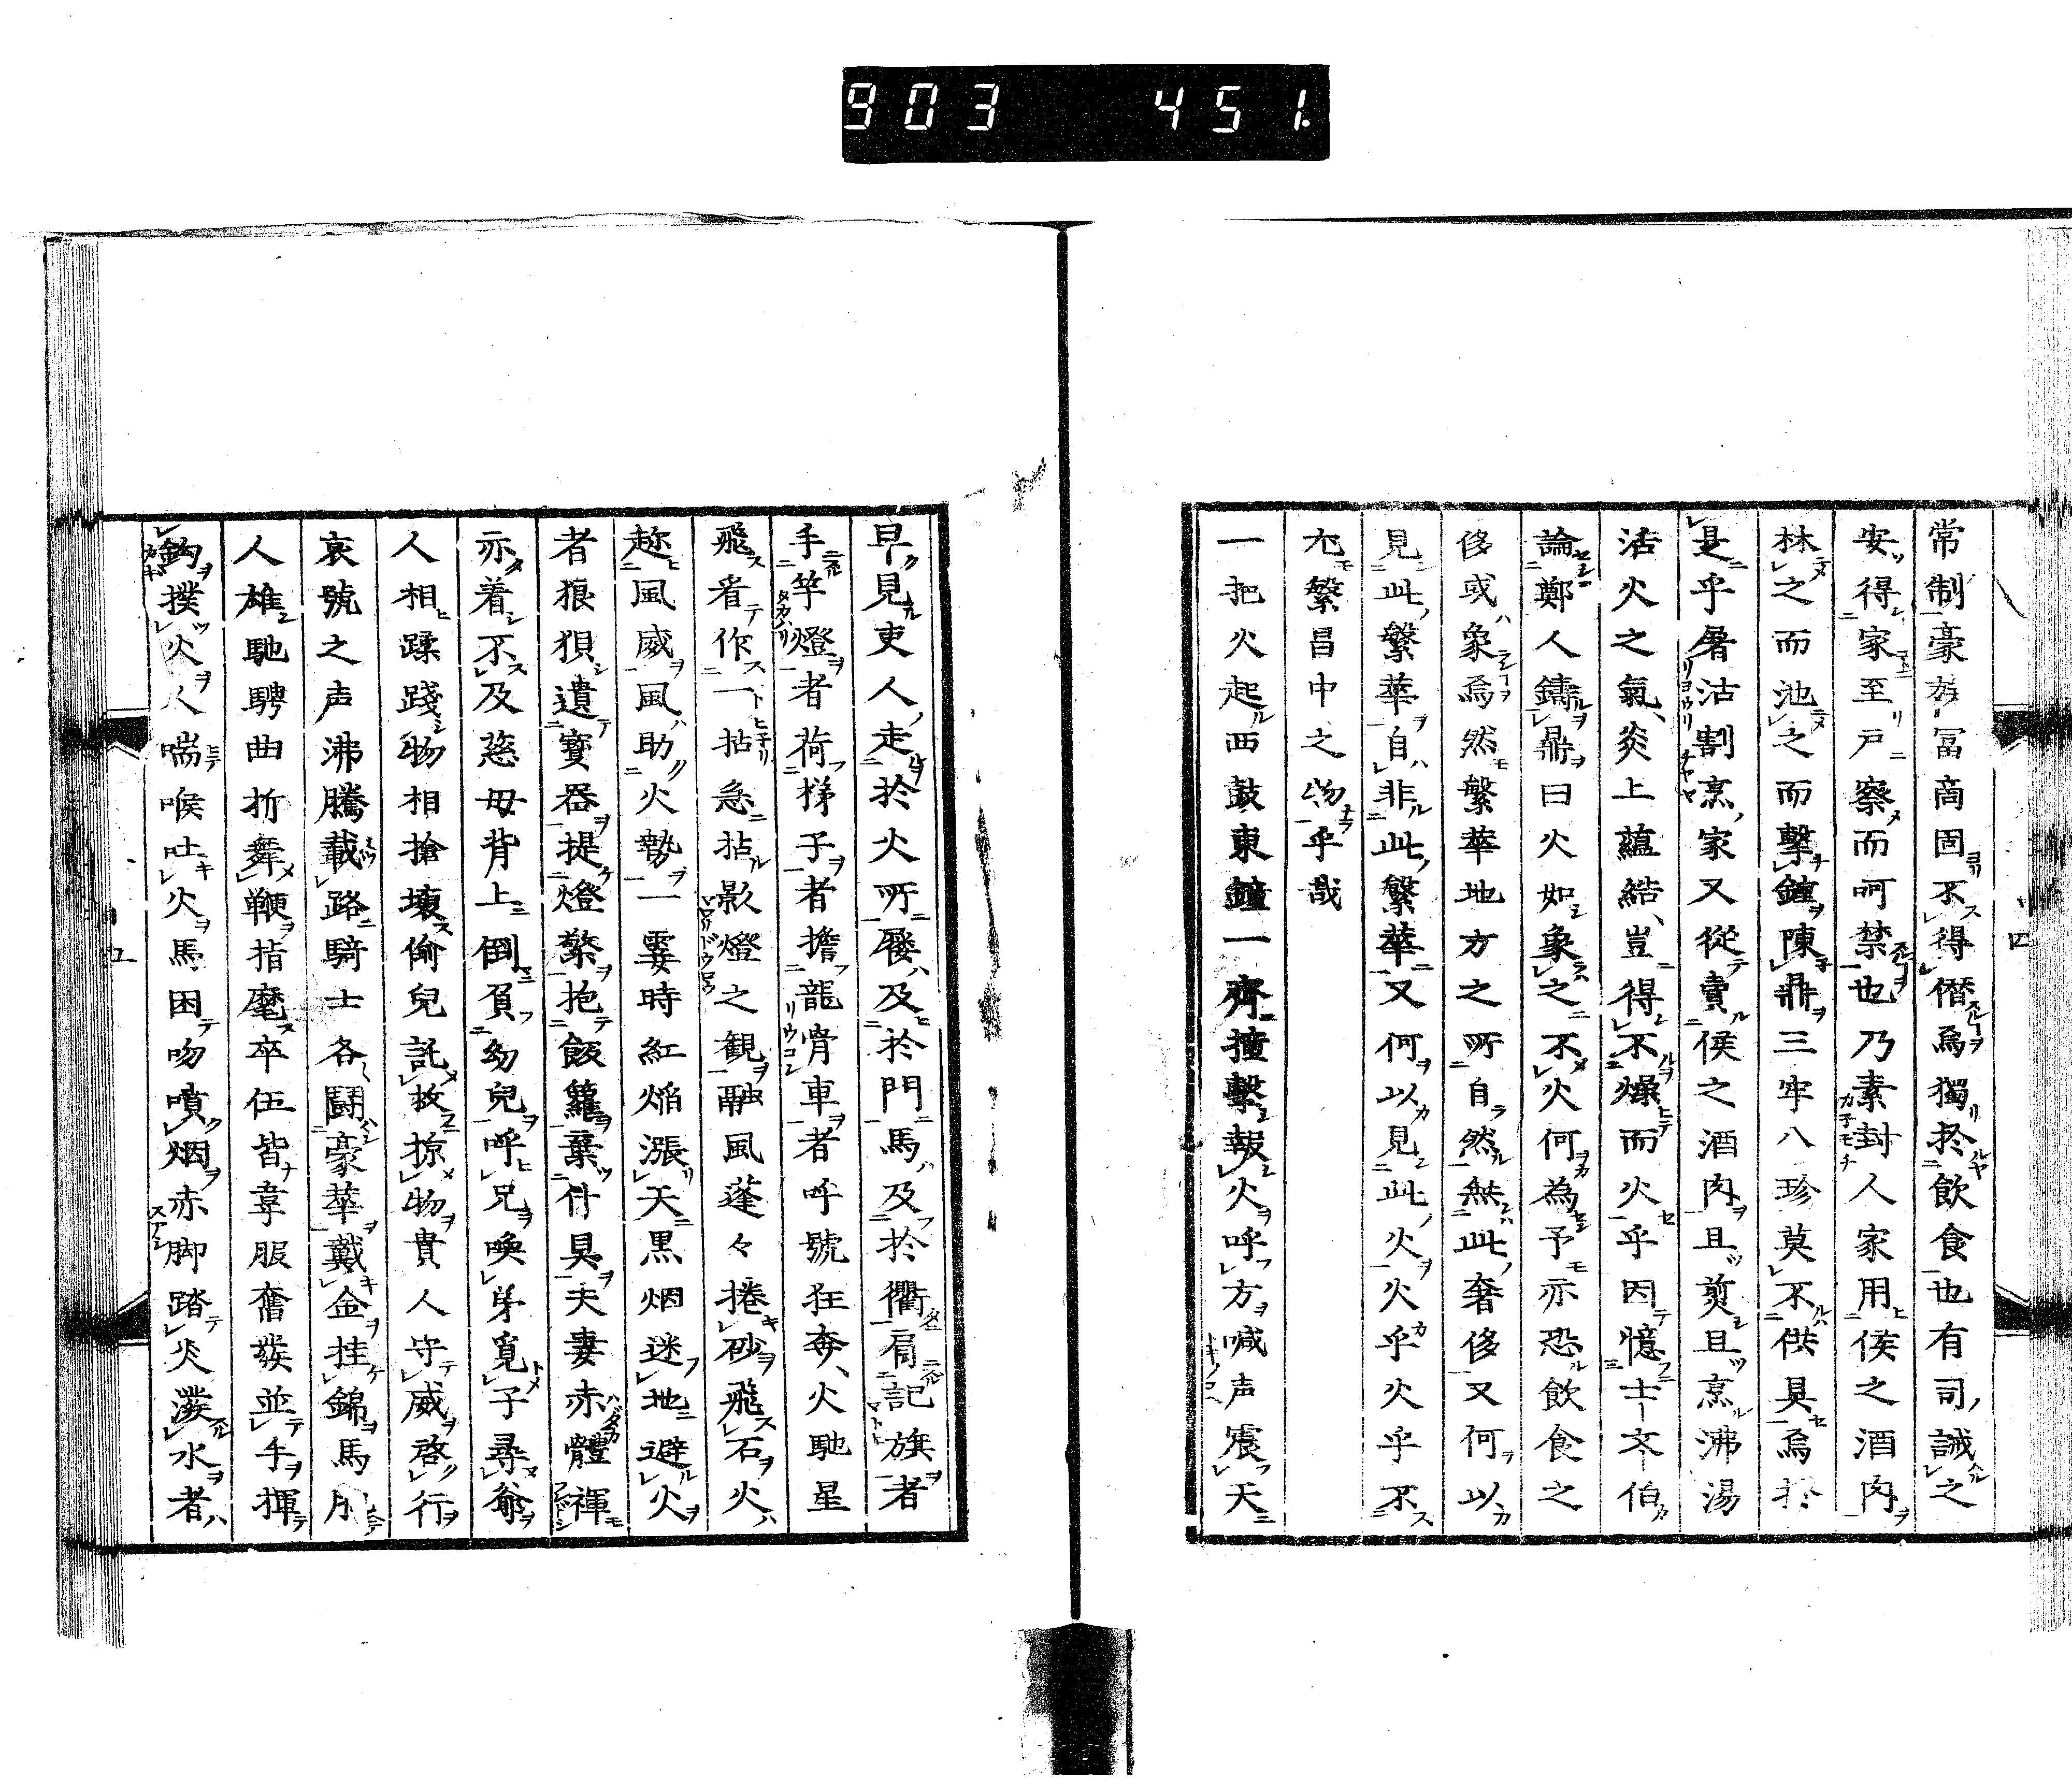 903 451.
常制豪族冨商固不得僭焉獨於飲食也有司誡之
安得家至戸察而呵禁也乃素封人家用侯之酒肉
林之而池之而撃鐘陳鼎三牢八珍莫不供具焉於
是乎屠沽割烹家又從賣侯之酒肉且煎且烹沸湯
活火之氣炎上蘊結豈得不燥而火乎因憶士夲伯
論鄭人鑄鼎曰火如象之不火何為予亦恐飲食之
侈或象焉然繁華地方之所自然無此奢侈又何以
見此繁華自非此繁華又何以見此火火乎火乎不
亦繁昌中之物乎哉
一把火起西鼓東鐘一齊撞撃報火呼方喊声震天
早見吏人走於火所屐及於門馬及於衢肩記旗者
手竿燈者荷梯子者擔龍骨車者呼號狂奔火馳星
飛看作一拈急拈影燈之観融風蓬々捲砂飛石火
趂風威風助火勢一霎時紅焔漲天黒烟迷地避火
者狼狽遺寳器提燈檠抱飯籮棄什具夫妻赤體褌
亦着不及慈母背上倒負幼兒呼兄喚弟覓子尋爺
人相蹂踐物相搶壊偷兒託救掠物貴人守威啓行
哀號之声沸騰載路騎士各鬪豪華戴金挂錦馬
人雄馳騁曲折舞鞭指麾卒伍皆韋服奮發並手揮
鈎撲火人喘喉吐火馬困吻噴烟赤脚踏炎濺水者
四
五